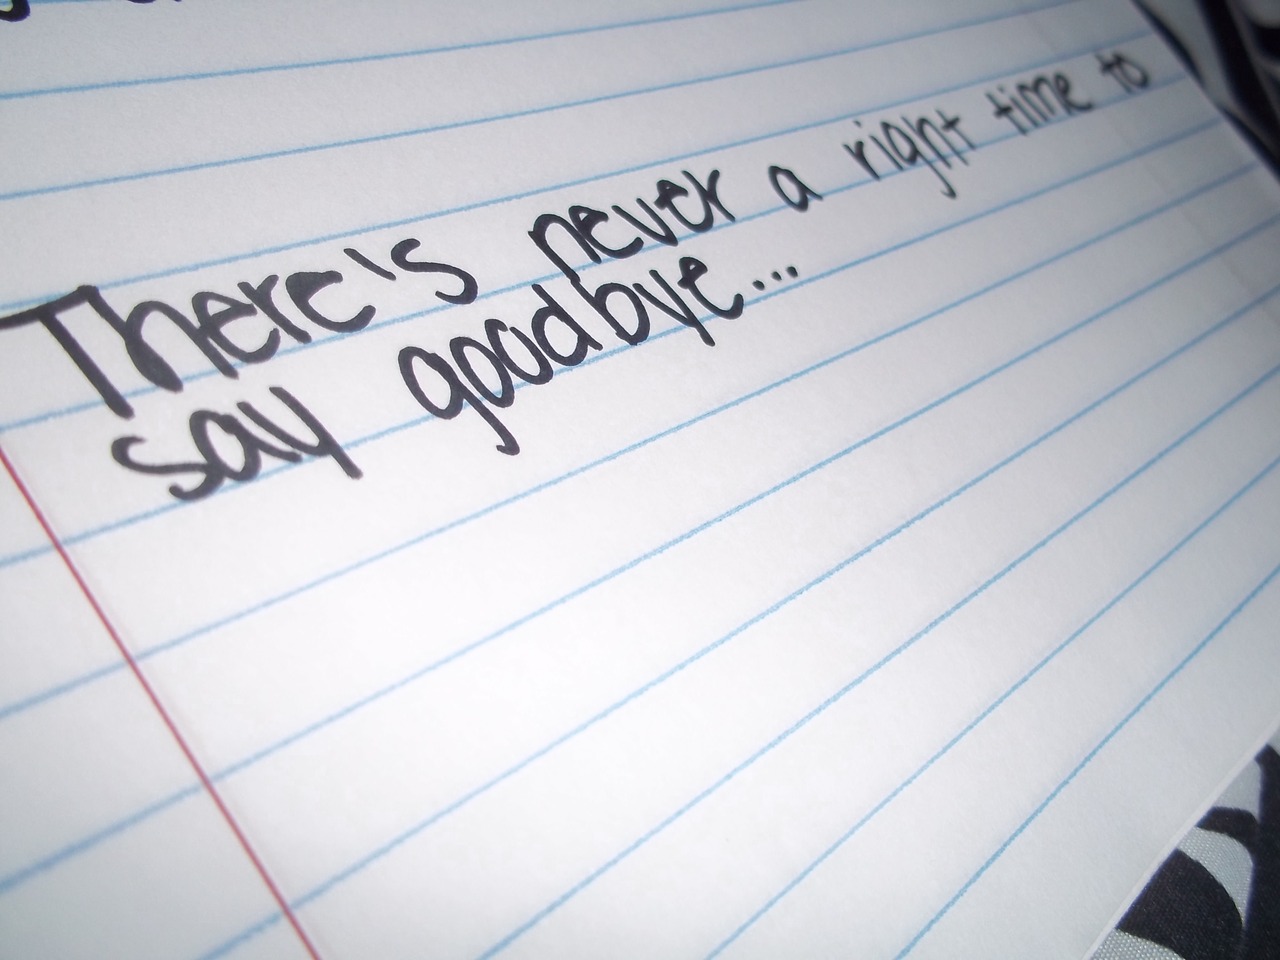 There's never a right time to
say goodbye...